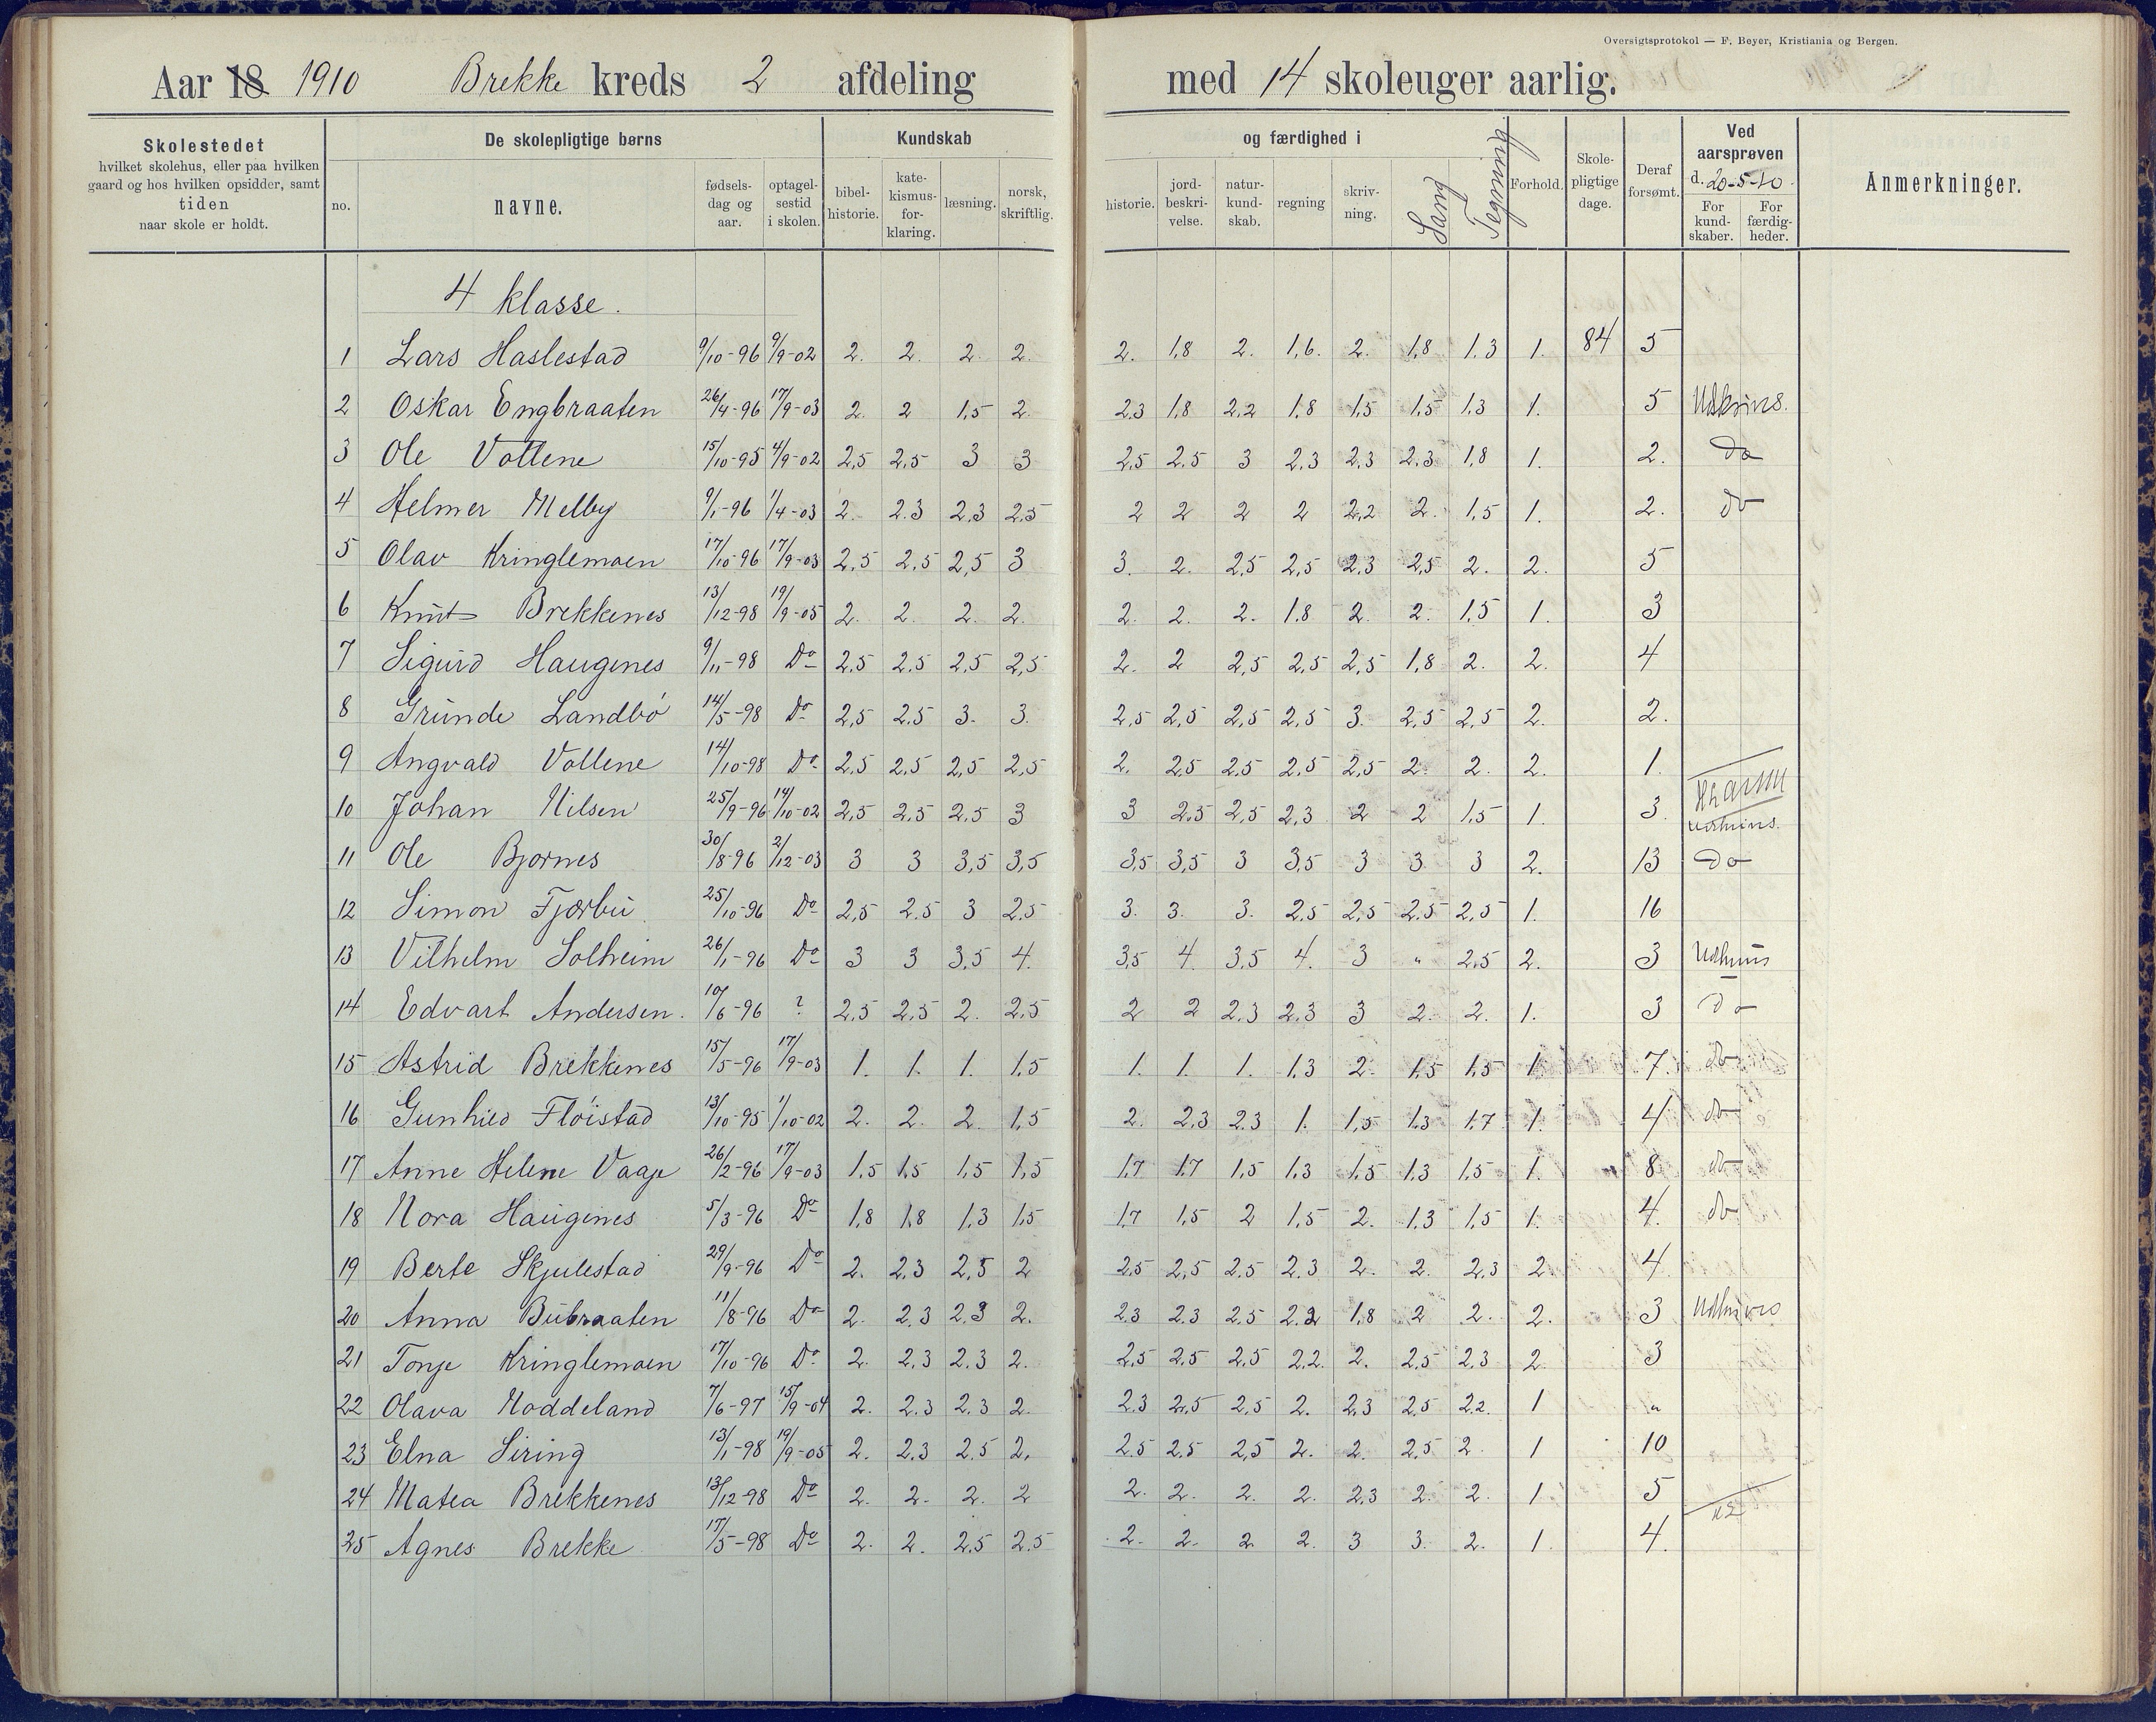 Oversigtsprotokol — F. Beyer, Kristiania og Bergen.
Aar 18 1910 Brekke kreds 2 afdeling med 14 skoleuger aarlig.
Skolestedet hvilket skolehus, eller paa hvilken gaard og hos hvilken opsidder, samt tiden naar skole er holdt.
De skolepligtige børns
no. navne. fødsels-dag og aar. optagel-sestid i skolen.
Kundskab og færdighed i
bibel-historie. kate-kismus-for-klaring. læsning. norsk, skriftlig. historie. jord-beskri-velse. natur-kund-skab. regning skriv-ning. Sang Tegning Forhold. Skole-pligtige dage. Deraf forsømt.
Ved aarsprøven d. 20-5-10. For kund-skaber. For færdig-heder.
Anmerkninger.
4 klasse.
1 Lars Haslestad 9/10-96 9/9-02 2. 2. 2. 2. 2. 1,8 2. 1,6. 2. 1,8 1.3 1. 84 5
2 Oskar Engbraaten 26/4-96 17/9-03 2. 2 1,5 2. 2.3 1,8 2,2 1,8 1,5 1,5 1,3 1. 5 Udskrives.
3 Ole Vollene 15/10-95 4/9-02 2,5 2,5 3 3 2,5 2,5 3 2,3 2,3 2.3 1,8 1. 2. do
4 Helmer Melby 9/1-96 1/4-03 2. 2.3 2,3 2,5 2 2 2 2 2,2 2. 1,5 1. 2. do
5 Olav Kringlemoen 17/10-96 17/9-03 2,5 2,5 2,5 3 3. 2. 2,5 2,5 2,3 2,5 2. 2. 5
6 Knut Brekkenes 13/12-98 19/9-05 2. 2. 2. 2. 2. 2. 2. 1.8 2. 2. 1.5 1. 3
7 Sigurd Haugenes 9/11-98 Do 2.5 2,5 2,5 2,5 2. 2 2,5 2,5 2,5 1,8 2. 2. 4
8 Grunde Landbø 14/5-98 Do 2,5 2.5 3. 3. 2,5 2,5 2,5 2,5 3. 2,5 2,5 2. 2.
9 Angvald Vollene 14/10-98 Do 2.5 2.5 2,5 2,5 2. 2,5 2.5 2.5 2,5 2. 2. 2. 1.
10 Johan Nilsen 25/9-96 14/10-02 2,5 2,5 2,5 3 3 2.5 2,5 2,3 2 2 1,5 1. 3.
11 Ole Bjornes 30/8-96 2/12-03 3 3 3,5 3,5 3,5 3,5 3 3,5 3 3 3 2. 13 do
12 Simon Fjærbu 25/10-96 Do 2,5 2.5 3 2,5 3. 3. 3. 2,5 2,5 2.5 2,5 1. 16
13 Vilhelm Solheim 26/1-96 Do 3 3 3,5 4. 3,5 4. 3,5 4. 3 " 2,5 2. 3
14 Edvart Andersen. 10/6-96 ? 2,5 2,5 2. 2,5 2 2 2.3 2,3 3 2. 2. 1. 3 do
15 Astrid Brekkenes 15/5-96 17/9-03 1. 1. 1. 1.5 1. 1. 1. 1.3 2. 1.5 1.5 1. 7. do
16 Gunhild Fløistad 13/10-95 1/10-02 2. 2. 2. 1,5 2. 2,3 2.3 1. 1,5 1.3 1.7 1. 4 do
17 Anne Helene Vaaje 26/2-96 17/9-03 1.5 1.5 1,5 1,5 1.7 1.7 1,5 1.3 1.5 1.3 1.5 1. 8 do
18 Nora Haugenes 5/3-96 Do 1,8 1,8 1.3 1.5 1.7 1.5 2 1.5 2. 1.3 1.5 1. 4. do
19 Berte Skjulestad 29/9-96 Do 2. 2,3 2,5 2 2.5 2,5 2.5 2.3 2. 2. 2.3 2. 4.
20 Anna Bubraaten 11/8-96 Do 2. 2.3 2.3 2. 2.3 2.3 2.5 2.2 1,8 2 2. 2. 3
21 Tonje Kringlemoen 17/10-96 Do 2. 2,3 2.3 2. 2,5 2.5 2,5 2,2. 2. 2,5 2,3 2. 3
22 Olava Noddeland 7/6-97 15/9-04 2. 2.3 2.3 2. 2.3 2.5 2.5 2. 2.3 2.5 2.2. 1 "
23 Elna Siring 13/1-98 19/9-05 2. 2.3 2.5 2. 2.5 2.5 2,5 2. 2. 2,5 2 1 10
24 Matea Brekkenes 13/12-98 Do 2. 2. 2. 2 2. 2. 2. 2. 2.3 2. 2. 1 5
25 Agnes Brekke 17/5-98 Do 2. 2. 2.5 2.5 2. 2. 2 2. 3 3. 2. 1. 4.